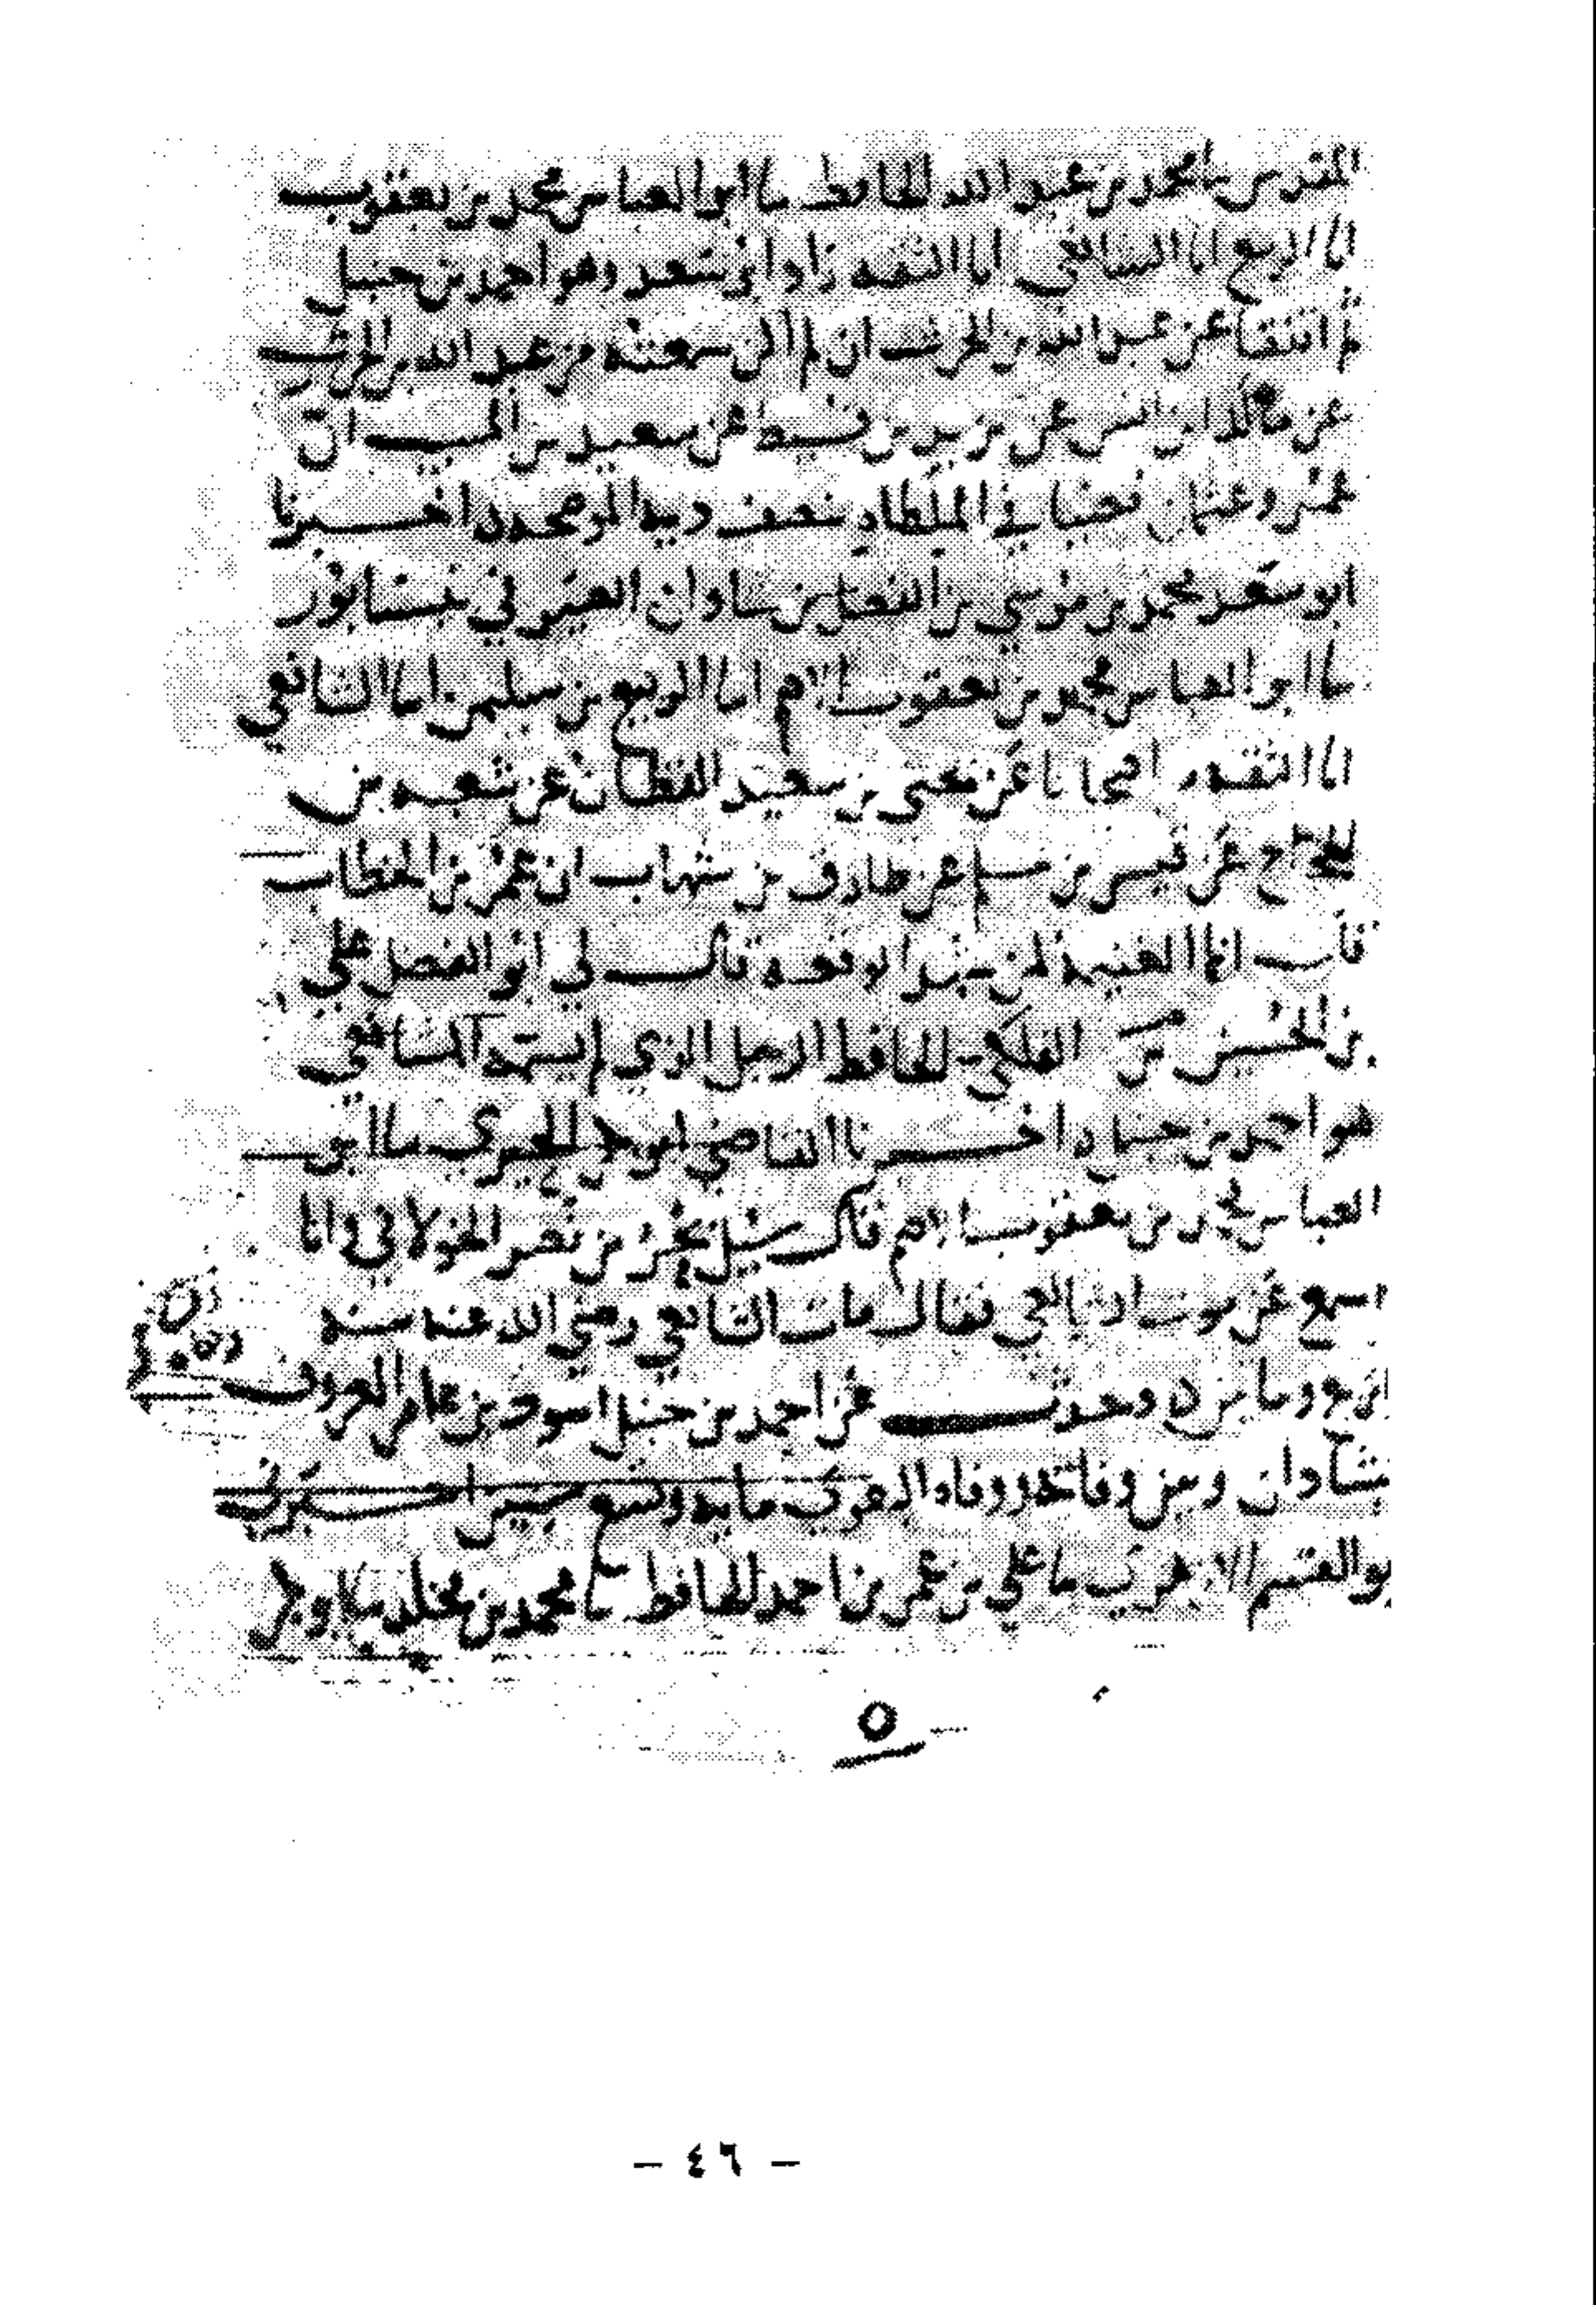 محمد بن عبد الله الحافظ ىا ابو العباس محمد بن يعقوب
انا الربيع انا الشافعي انا الثقه زاد ابو سعد وهو احمد بن حنبل
او الثقه عن عبد الله بن الحرث ان لم اكن سمعته من عبد الله بن الحرث
عن مالك ابن انس عن يزيد بن قسيط عن سعيد بن المسيب ان
عمر وعثمان قضيا في الملطاه بنصف ديه الموضحه ن اخبرنا
ابو سعد محمد بن موسي بن الفضل بن شاذان الصيرفي بنيسابور
ىا ابو العباس محمد بن يعقوب الاصم انا الربيع بن سليمن انا الشافعي
انا الثقه من اصحابنا عن يحيى بن سعيد القطان عن شعبه بن
الحجاج عن قيس بن مسلم عن طارق بن شهاب ان عمر بن الخطاب
قال انما الغنيمه لمن شهد الوقعه قال لي ابو الفضل علي
بن الحسين بن الفلكي الحافظ الرجل الذي لم يسمه الشافعي
هو احمد بن حنبل ن اخبرنا القاضي ابو بكر الحيري ىا ابو
العباس محمد بن يعقوب الاصم قال سئل بحر بن نصر الخولاني وانا
اسمع عن موت الشافعي فقال مات الشافعي رضي الله عنه سنه
اربع ومايتين ن وحدث عن احمد بن حنبل اسود بن عامر المعروف
بشاذان وبين وفاته ووفاه البغوي مايه وتسع سنين اخبرني
ابو القسم الازهري ىا علي بن عمر بن احمد الحافظ ىا محمد بن مخلد
٥
– ٤٦ –